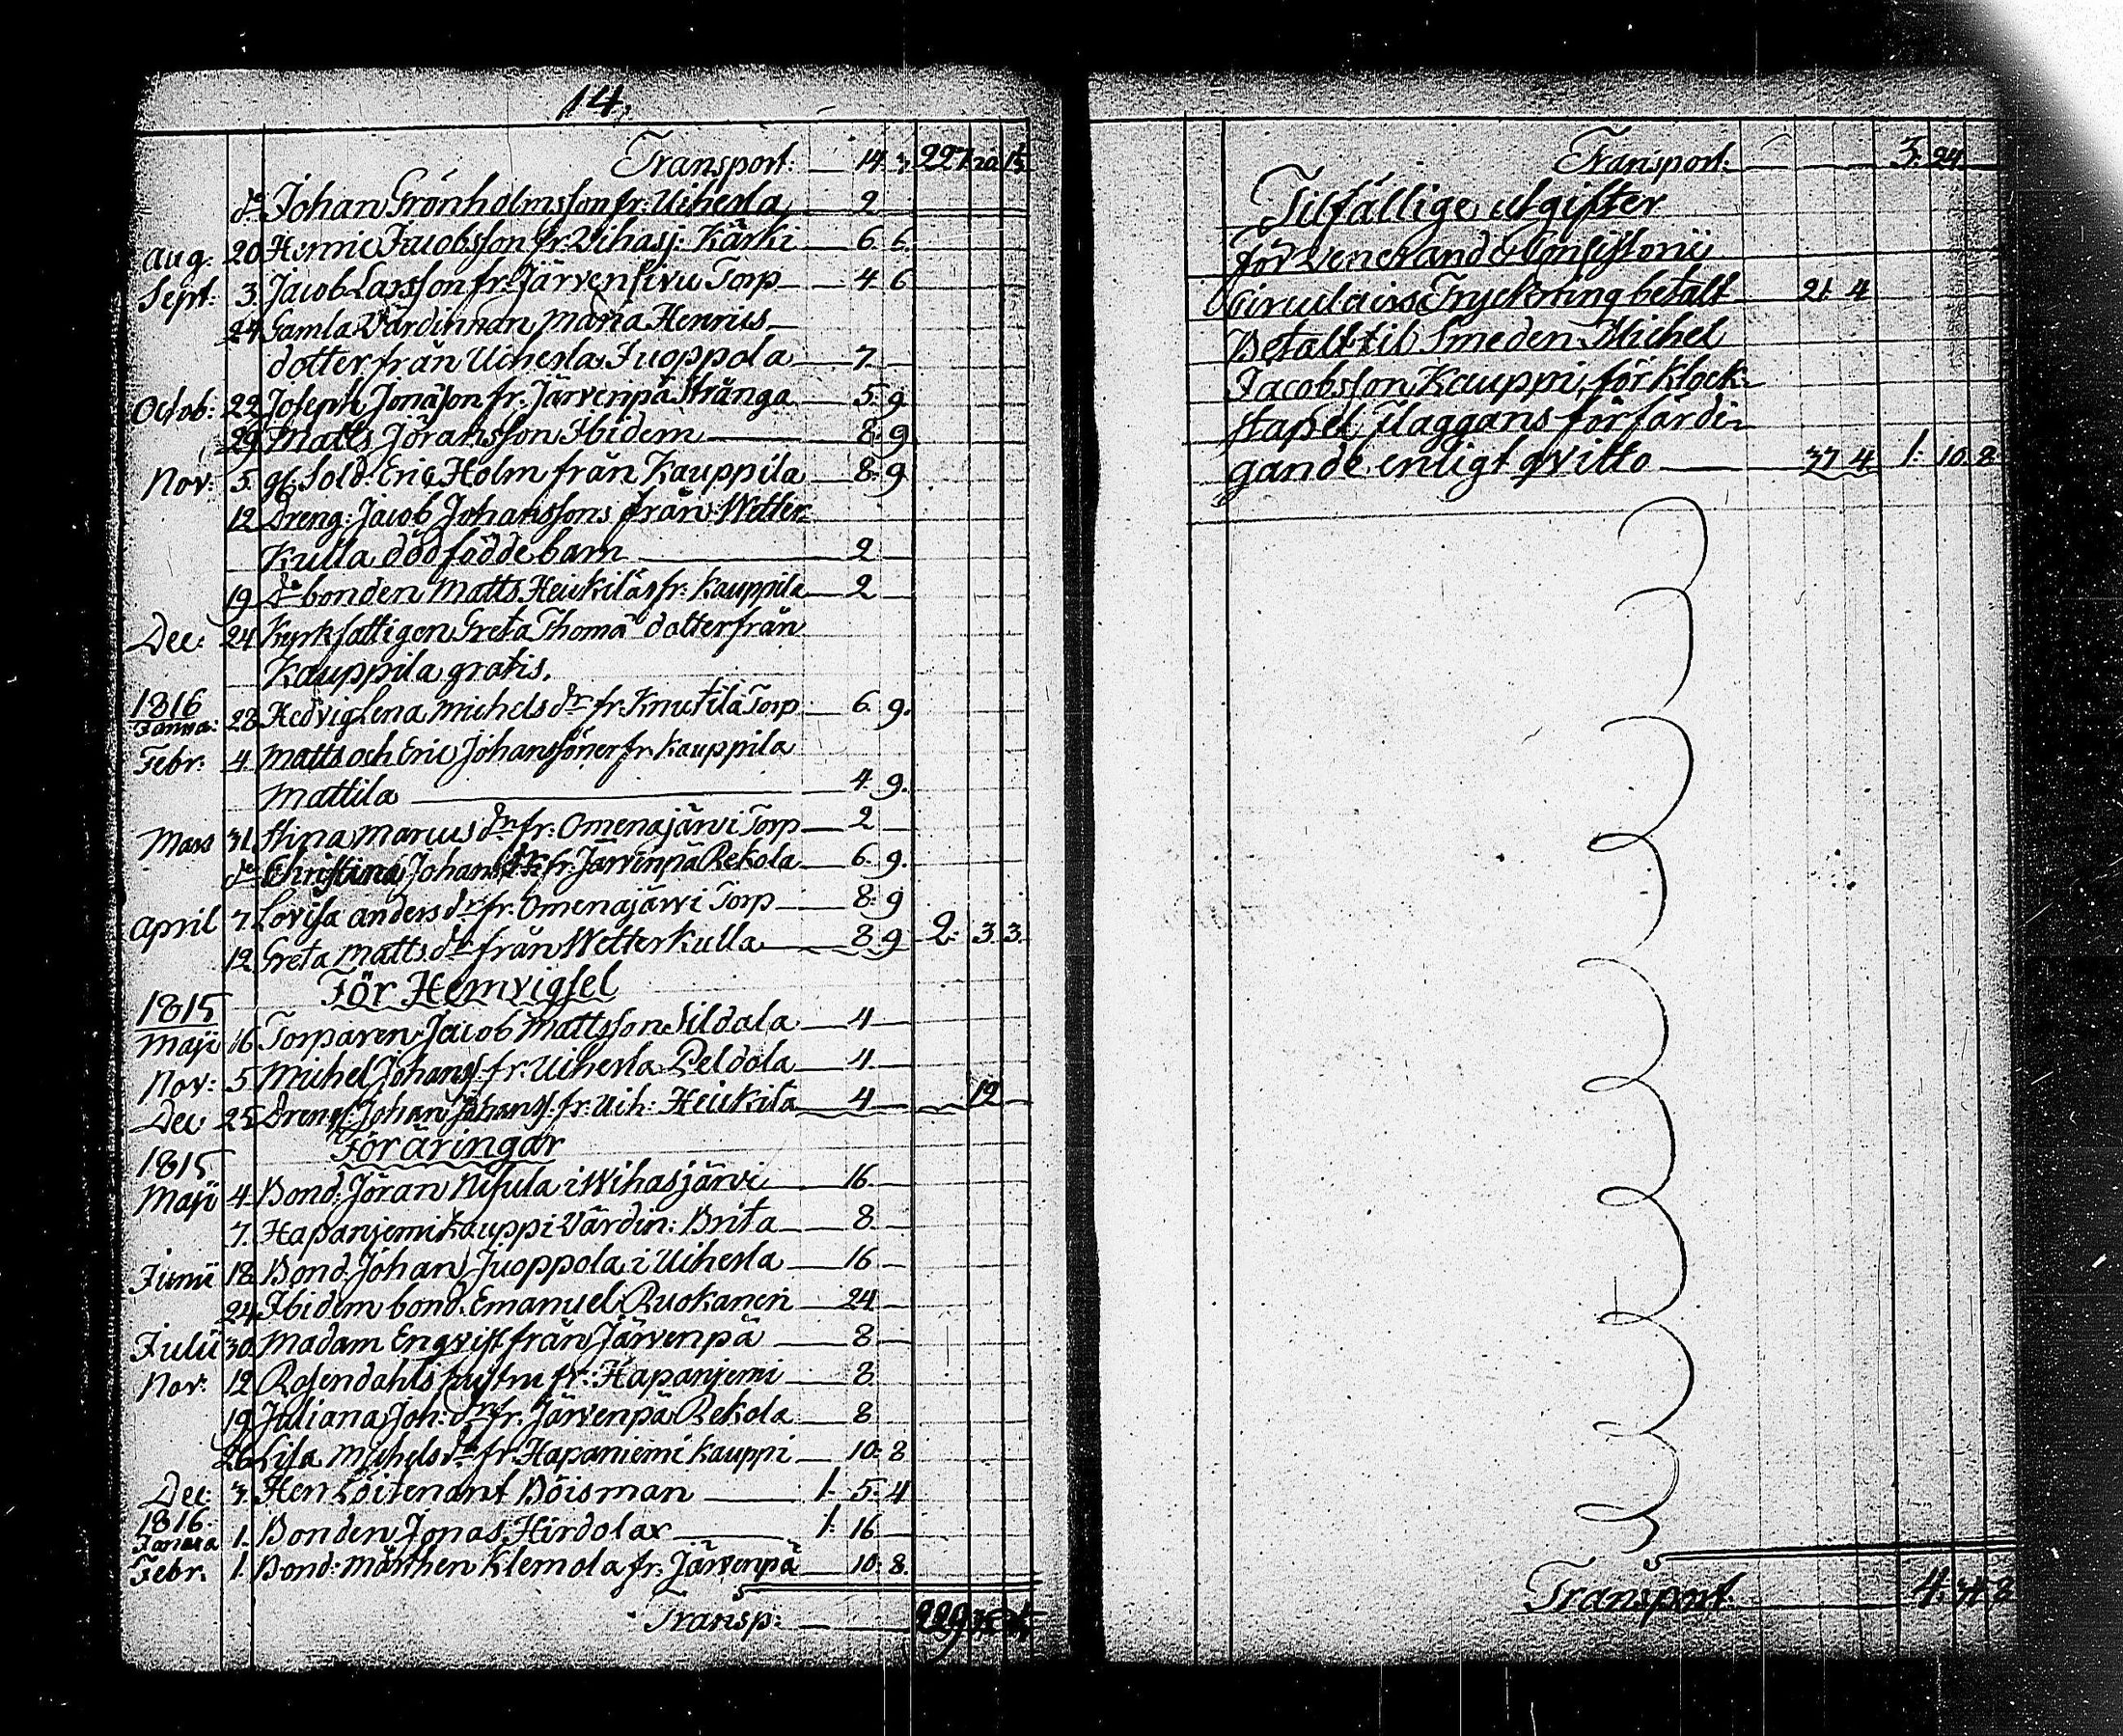 14.
Transport: 14. 3. 227. 20. 1
do Johan Grönholmsson fr: Uiherla 2
Aug: 20 Henric Jacobsson fr. Vihasj: Kärki 6. 6.
Sept: 3. Jacob Larsson fr. Järvensivu Torp 4. 6
24 Gamla Värdinnan Maria Henrics
dotter från Uiherla Juoppola 7
Octob: 22. Joseph Jonasson fr. Järvenpä Stränga 5. 9.
29 Matts Jöransson Ibidem 8. 9
Nov: 5. gl. Sold: Eric Holm från Kauppila 8. 9
12 Dreng: Jacob Johanssons från Wetter
Kulla dödfödde barn 2
19 do bonden Matts Heickiläs fr: Kauppila 2
Dec: 24 Kyrkfattigen Greta Thomä dotter från
Kauppila gratis.
1816
Janua: 28 Hedvig Lena Michels dr fr. Knutila Torp 6. 9.
Febr. 4. Matts och Eric Johanssöner fr. Kauppila
Mattila 4. 9.
Mars 31. Stina Marcus dr fr: Omenajärvi Torp 2
do Christina Johans dr fr. Järvenpä Rekola 6. 9.
April 7. Lovisa Anders dr fr. Omenajärvi Torp 8. 9
12 Greta Matts dr från Wetterkulla 8. 9 2. 3. 3.
För Hemvigsel
1815
Maji 16 Torparen Jacob Mattsson Sildala 4
Nov: 5 Michel Johanss. fr. Uiherla Peldola 4
Dec 25 Dreng: Johan Johanss. fr. Uih: Heickila 4 12
Föräringar
1815
Maji 4 Bond: Jöran Nisula i Wihasjärvi 16.
7. Hapanjemi Kauppi Värdin: Brita 8
Junii 18 Bond. Johan Juoppola i Uiherla 16
24 Ibidem bond. Emanuel Ruokanen 24
Julii 30 Madam Engvist från Järvenpä 8
Nov: 12 Rosendahls hustru fr: Hapanjemi 8
19 Juliana Joh: dr fr. Järvenpä Rekola 8
26 Lisa Michels dr fr. Hapaniemi Kauppi 10. 8
Dec 3. Herr Löitenant Böisman 1. 5. 4
1816
Janua 1. Bonden Jonas Hirdolax 1. 16
Febr. 1. Bond: Mårthen Klemola fr. Järvenpä 10. 8.
Transp: 229
Transport: 3. 24
Tilfällige utgifter
För Venerandi Consistorii
Circulairs Tryckning betalt 21. 4
Betalt til Smeden Michel
Jacobsson Kauppi, för klock-
stapel flaggans förfärdi-
gande enligt qvitto 37. 4. 1. 10. 8
Transport 4. 34. 8